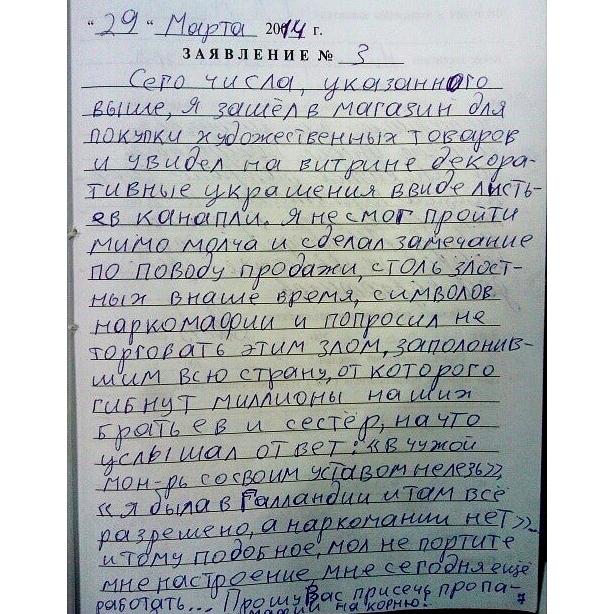 "29" Марта 2014 г.
ЗАЯВЛЕНИЕ № 3
Сего числа, указанного
выше, я зашёл в магазин для
покупки художественных товаров
и увидел на витрине декора-
тивные украшения ввиде листь-
ев канапли. Я не смог пройти
мимо молча и сделал замечание
по поводу продажи, столь злост-
ных внаше время, символов
наркомафии и попросил не
торговать этим злом, заполонив-
шим всю страну, от которого
гибнут миллионы наших
братьев и сестёр, на что
услышал ответ: «в чужой
мон-рь сосвоим уставом нелезь»,
«я была в Галландии и там всё
разрешено, а наркомании нет»...
и тому подобное, мол не портите
мне настроение мне сегодня ещё
работать... Прошу Вас присечь пропа-
на корню.